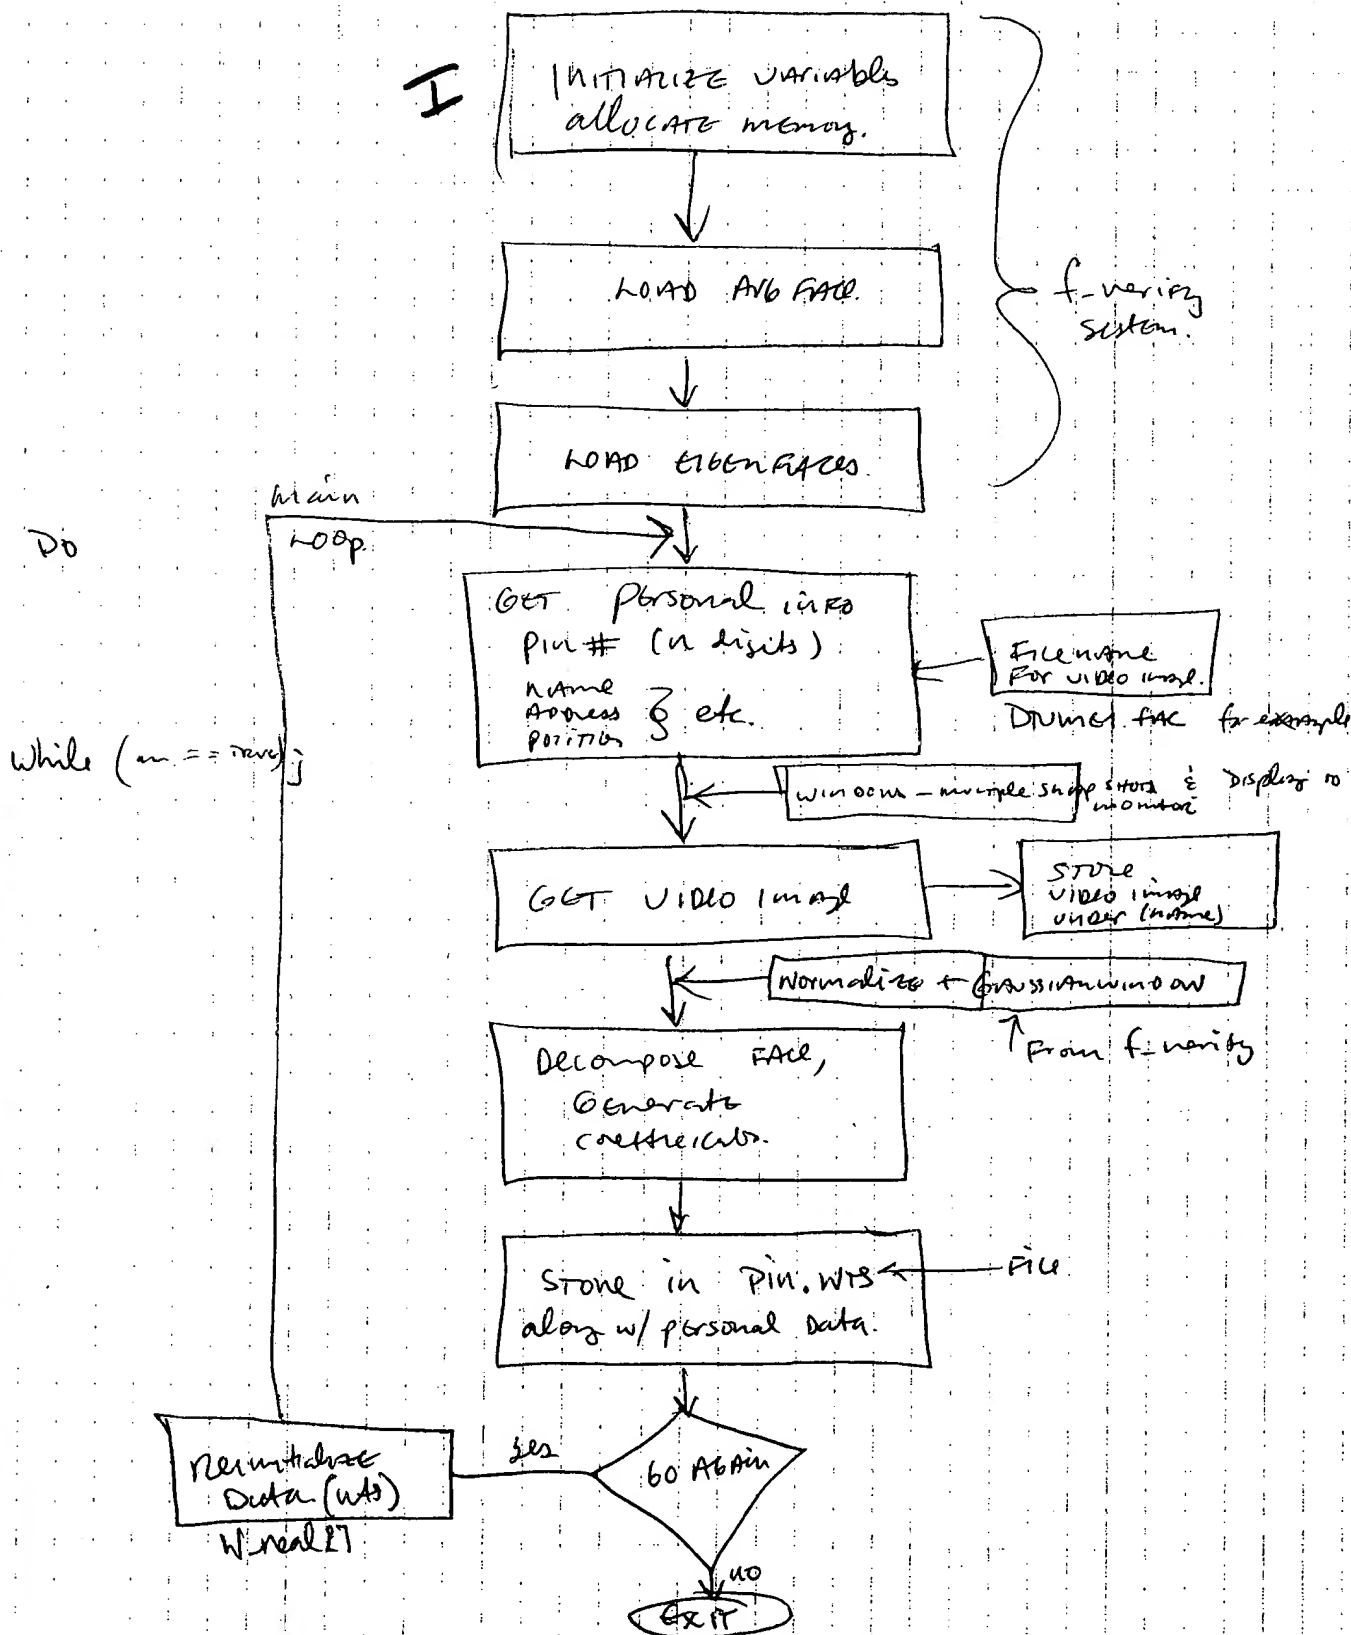 I
INITIALIZE VARIABLES
ALLOCATE MEMORY.
LOAD AVG FACE.
f_verify
system.
LOAD EIGENFACES.
Main
Loop.
Do
GET personal info
Pin # (n digits)
Name
Address
position
} etc.
Filename
For video image.
.FAC for example
While ( == TRUE);
WINDOWS - multiple snap shots & Display to
monitor
GET VIDEO Image
STORE
VIDEO image
under (name)
Normalize + GAUSSIAN WINDOW
From f_verify
Decompose FACE,
Generate
coefficients.
Store in Pin.WTS
along w/ personal Data.
File
GO AGAIN
yes
Reinitialize
Data (wts)
W_real[]
no
EXIT